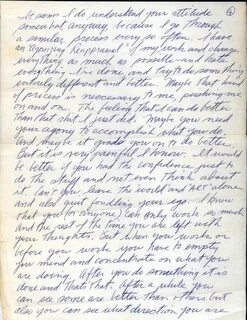 it some I do understand your attitude
somewhat anyway, because I go through
a similar process every so often. I have
an "Agonizing Reappraisal" of my work and change
everything as much as possible – and hate
everything I've done and try to do something
entirely different and better. Maybe that kind
of process is necessary to me, pushing me
on and on. The feeling that I can do better
than that shit I just did. Maybe you need
your agony to accomplish what you do.
And maybe it goads you on to do better.
But it is very painful I know. It would
be better if you had the confidence just to
do the stuff and not even think about
it. Can't you leave the "world" and "ART" alone
and also quit fondling your ego. I know
that you (or anyone) can only work so much
and the rest of the time you are left with
your thoughts. But when you work or
before you work you have to empty
your mind and concentrate on what you
are doing. After you do something it is
done and that's that. After a while you
can see some are better than others but
also you can see what direction you are